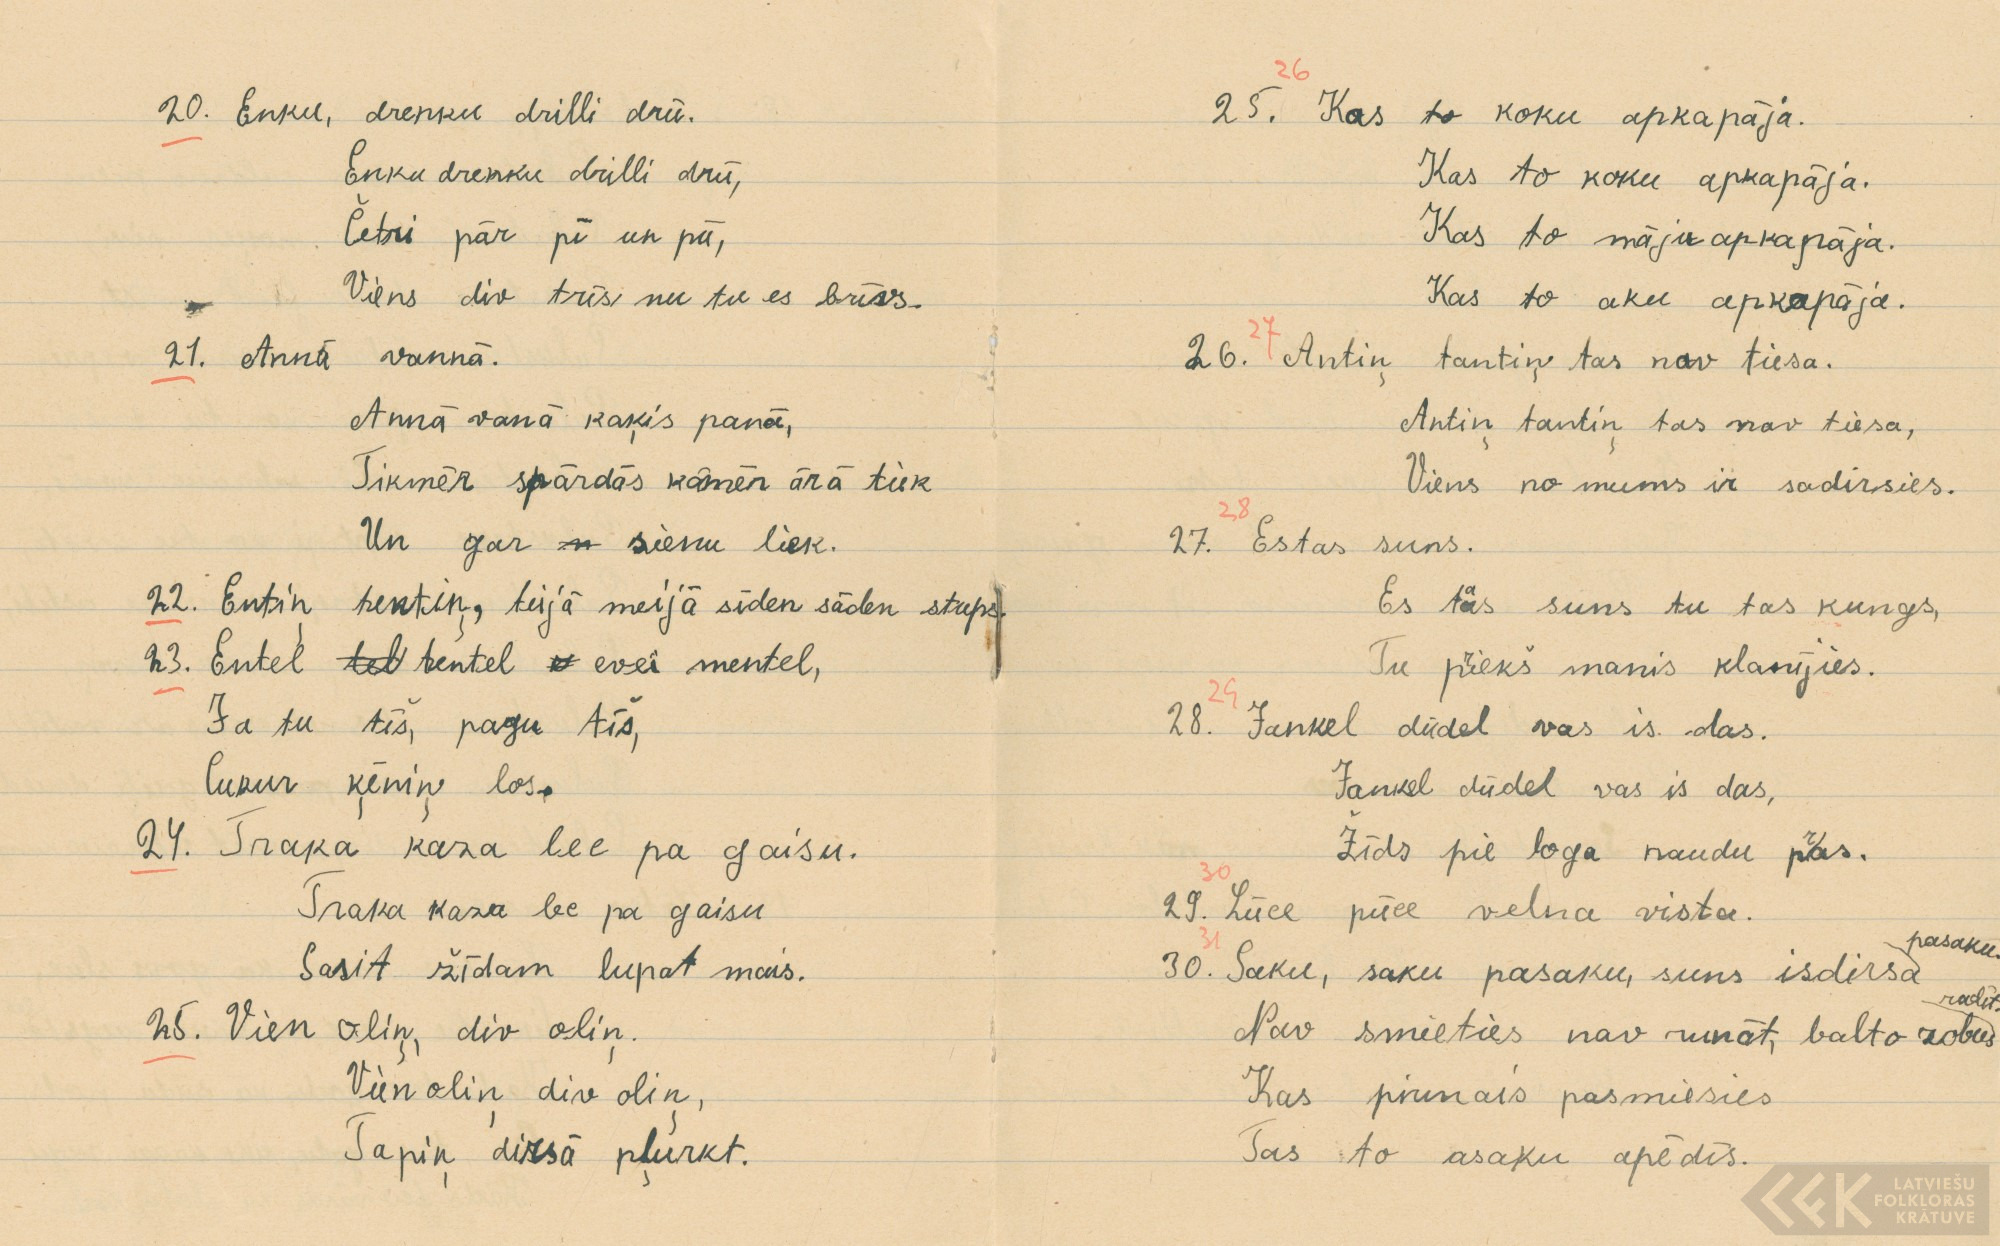 20. Enku, drenku drilli drū.
Enku drenku drilli drū,
Četri pār pī un pū,
Viens div trīs nu tu es brīvs.
21. Annā vannā.
Annā vanā kaķis panā,
Tikmēr spārdās kāmēn ārā tiek
Un gar sienu liek.
22. Entiņ tentiņ, teijā meijā sīden sāden stups.
23. Entel tel tentel evei mentel,
Ja tu tīš, pagu tīš,
Cukur ķēniņ los.
24. Traka kaza lec pa gaisu.
Traka kaza lec pa gaisu
Sasit žīdam lupat mais.
25. Vien oliņ, div oliņ.
Vien oliņ div oliņ,
Tapiņ dirsā pļurkt.
26
25. Kas to koku apkapāja.
Kas to koku apkapāja.
Kas to māju apkapāja.
Kas to aku apkapāja.
27
26. Antiņ tantiņ tas nav tiesa.
Antiņ tantiņ tas nav tiesa,
Viens no mums ir sadirsies.
28
27. Es tas suns.
Es tas suns tu tas kungs,
Tu priekš manis klanījies.
29
28. Jankel dūdel vas is das.
Jankel dūdel vas is das,
Žīds pie loga naudu pras.
30
29. Lūce pūce velna vista.
31
30. Saku, saku pasaku, suns isdirsa pasaku.
Nav smieties nav runāt, balto zobus radīt.
Kas pirmais pasmiesies
Tas to asaku apēdīs.
LATVIEŠU
FOLKLORAS
KRĀTUVE